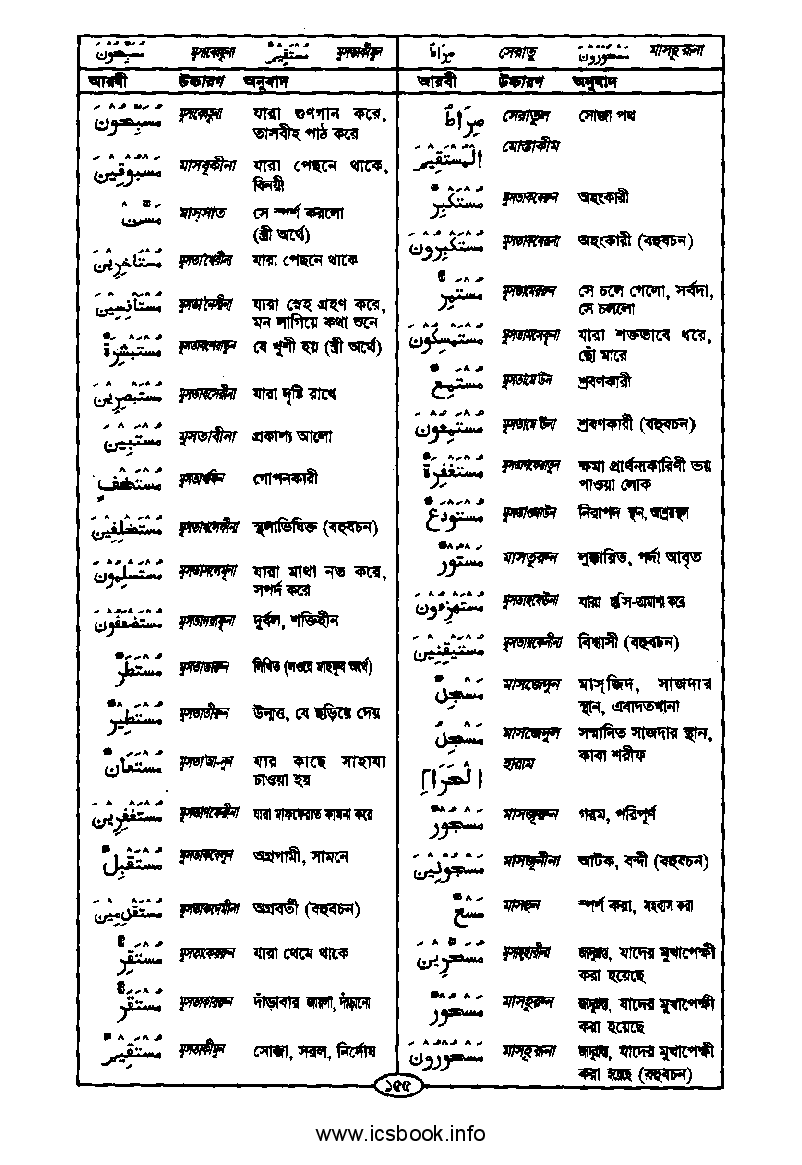 مُسَبِّحُونَ মুসাব্বেহুনা مُسْتَقِيمٌ মুসতাকীমুন
আরবী উচ্চারণ অনুবাদ
مُسَبِّحُونَ মুসাব্বেহুনা যারা গুণগান করে,
তাসবীহ পাঠ করে
مَسْبُوقِينَ মাসবুকীনা যারা পেছনে থাকে,
বিনয়ী
مَسَّتْ মাস্সাত সে স্পর্শ করলো
(স্ত্রী অর্থে)
مُسْتَأْخِرِينَ মুসতা'খেরীনা যারা পেছনে থাকে
مُسْتَأْنِسِينَ মুসতা'নেসীনা যারা স্নেহ গ্রহণ করে,
মন লাগিয়ে কথা শুনে
مُسْتَبْشِرَةٌ মুসতাবশেরাতুন যে খুশী হয় (স্ত্রী অর্থে)
مُسْتَبْصِرِينَ মুসতাবসেরীনা যারা দৃষ্টি রাখে
مُسْتَبِينَ মুসতাবীনা প্রকাশ্য আলো
مُسْتَخْفٍ মুসতাখফিন গোপনকারী
مُسْتَخْلَفِينَ মুসতাখলাফীনা স্থলাভিষিক্ত (বহুবচন)
مُسْتَسْلِمُونَ মুসতাসলেমুনা যারা মাথা নত করে,
সপর্দ করে
مُسْتَضْعَفُونَ মুসতাদআফুনা দুর্বল, শক্তিহীন
مُسْتَطَرٌ মুসতাতারুন লিখিত (লওহে মাহফুয অর্থে)
مُسْتَطِيرٌ মুসতাতীরুন উন্মুক্ত, যে ছড়িয়ে দেয়
مُسْتَعَانُ মুসতাআ-নুন যার কাছে সাহায্য
চাওয়া হয়
مُسْتَغْفِرِينَ মুসতাগফেরীনা যারা মাগফেরাত কামনা করে
مُسْتَقْبِلَ মুসতাকবেলুন অগ্রগামী, সামনে
مُسْتَقْدِمِينَ মুসতাকদেমীনা অগ্রবর্তী (বহুবচন)
مُسْتَقِرٌّ মুসতাকেররুন যারা থেমে থাকে
مُسْتَقَرٌّ মুসতাকাররুন দাঁড়াবার জায়গা, দাঁড়ানো
مُسْتَقِيمٌ মুসতাকীমুন সোজা, সরল, নির্দোষ
صِرَاطٌ সেরাতু مَسْحُورُونَ মাসহুরুনা
আরবী উচ্চারণ অনুবাদ
صِرَاطٌ সেরাতুল সোজা পথ
الْمُسْتَقِيمَ মোস্তাকীম
مُسْتَكْبِرٌ মুসতাকবেরুন অহংকারী
مُسْتَكْبِرُونَ মুসতাকবেরুনা অহংকারী (বহুবচন)
مُسْتَمِرٌّ মুসতামেররুন সে চলে গেলো, সর্বদা,
সে চললো
مُسْتَمْسِكُونَ মুসতামসেকুনা যারা শক্তভাবে ধরে,
ছোঁ মারে
مُسْتَمِعٌ মুসতামে উন শ্রবণকারী
مُسْتَمِعُونَ মুসতামে উনা শ্রবণকারী (বহুবচন)
مُسْتَنْفِرَةٌ মুসতানফেরাতুন ক্ষমা প্রার্থনাকারিণী ভয়
পাওয়া লোক
مُسْتَوْدَعٌ মুসতাওদাউন নিরাপদ স্থান, আশ্রয়স্থল
مَسْتُورٌ মাসতুরুন লুক্কায়িত, পর্দা আবৃত
مُسْتَهْزِءُونَ মুসতাহযেউনা যারা হাসি-তামাশা করে
مُسْتَيْقِنِينَ মুসতাইকেনীনা বিশ্বাসী (বহুবচন)
مَسْجِدٌ মাসজেদুন মাসজিদ, সাজদার
স্থান, এবাদতখানা
مَسْجِدٌ মাসজেদুল সম্মানিত সাজদার স্থান,
الْحَرَامِ হারাম কাবা শরীফ
مَسْجُورٌ মাসজুরুন গরম, পরিপূর্ণ
مَسْجُونِينَ মাসজুনীনা আটক, বন্দী (বহুবচন)
مَسْحٌ মাসহুন স্পর্শ করা, সহবাস করা
مُسَحَّرِينَ মুসাহহারীনা জাদুগ্রস্ত, যাদের মুখাপেক্ষী
করা হয়েছে
مَسْحُورٌ মাসহুরুন জাদুগ্রস্ত, যাদের মুখাপেক্ষী
করা হয়েছে
مَسْحُورُونَ মাসহুরুনা জাদুগ্রস্ত, যাদের মুখাপেক্ষী
করা হয়েছে (বহুবচন)
১৫৫
www.icsbook.info